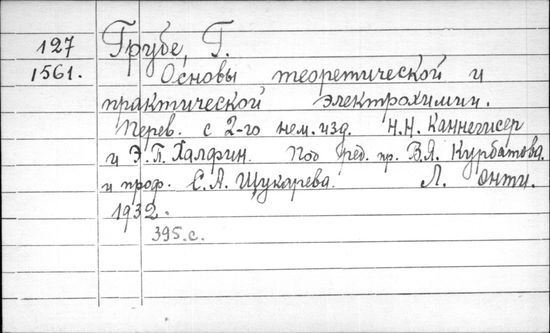 127 Грубе, Г.
1561. Основы теоретической и
практической электрохимии.
Перев. с 2-го нем. изд. Н.Н. Каннегисер
и Э.П. Халфин. Под ред. пр. В.Я. Курбатова
и проф. С.А. Щукарева. Л. Онти.
1932.
395.с.